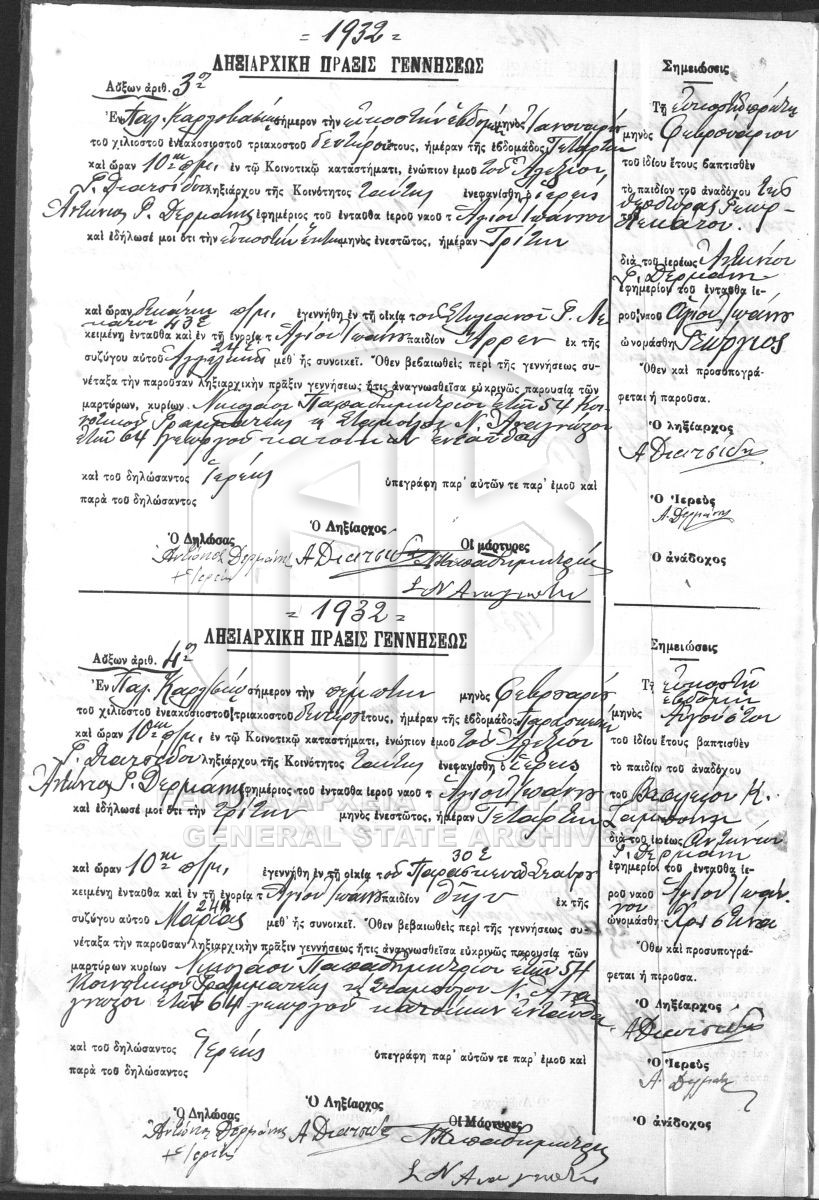 = 1932 =
ΛΗΞΙΑΡΧΙΚΗ ΠΡΑΞΙΣ ΓΕΝΝΗΣΕΩΣ
Αὔξων ἀριθ. 3η
Ἐν Παλ. Καρλοβασίῳ σήμερον τὴν εἰκοστὴν ἑβδόμην μηνὸς Ἰανουαρίου
τοῦ χιλιοστοῦ ἐνακοσιοστοῦ τριακοστοῦ δευτέρου ἔτους, ἡμέραν τῆς ἑβδομάδος Τετάρτην
καὶ ὥραν 10ην π.μ. ἐν τῷ Κοινοτικῷ καταστήματι, ἐνώπιον ἐμοῦ τοῦ Ἀλεξίου
Γ. Διατσίδου ληξιάρχου τῆς Κοινότητος ταύτης ἐνεφανίσθη ὁ ἱερεὺς
Ἀντώνιος Γ. Δερμάνης ἐφημέριος τοῦ ἐνταῦθα ἱεροῦ ναοῦ τ Ἁγίου Ἰωάννου
καὶ ἐδήλωσέ μοι ὅτι τὴν εἰκοστὴν ἕκτην μηνὸς ἐνεστῶτος, ἡμέραν Τρίτην
καὶ ὥραν δεκάτην π.μ. ἐγεννήθη ἐν τῇ οἰκίᾳ τοῦ Στυλιανοῦ Γ. Λε
κάτου 43ε
κειμένη ἐνταῦθα καὶ ἐν τῇ ἐνορίᾳ τ Ἁγίου Ἰωάν παιδίον Ἄρρεν ἐκ τῆς
συζύγου αὐτοῦ Ἀγγελικῆς μεθ' ἧς συνοικεῖ. Ὅθεν βεβαιωθεὶς περὶ τῆς γεννήσεως συ-
νέταξα τὴν παροῦσαν ληξιαρχικὴν πρᾶξιν γεννήσεως ἥτις ἀναγνωσθεῖσα εὐκρινῶς παρουσίᾳ τῶν
μαρτύρων, κυρίων Νικολάου Παπαδημητρίου ἐτῶν 54 Κοι
νοτικοῦ Γραμματέως κ Σταμάτου Ν. Ἀναγνώτου
ἐτῶν 64 γεωργοῦ κατοίκων ἐνταῦθα
καὶ τοῦ δηλώσαντος Ἱερέως ὑπεγράφη παρ' αὐτῶν τε παρ' ἐμοῦ καὶ
παρὰ τοῦ δηλώσαντος
Ὁ Δηλώσας Ὁ Ληξίαρχος Οἱ μάρτυρες
Ἀντώνιος Δερμάνης Α Διατσίδης Ν Παπαδημητρίου
+ Ἱερεύς
Σ Ν Αναγνώτου
Σημειώσεις
Τῇ εἰκοστῇ τετάρτῃ
μηνὸς Φεβρουαρίου
τοῦ ἰδίου ἔτους βαπτισθὲν
τὸ παιδίον τοῦ ἀναδόχου τῆς
Γεωρ-
τοῦ Λεκάτου.
διὰ τοῦ ἱερέως Ἀντωνίου
Γ. Δερμάνη
ἐφημερίου τοῦ ἐνταῦθα ἱε-
ροῦ ναοῦ Ἁγίου Ἰωάνν
ὠνομάσθη Γεώργιος
Ὅθεν καὶ προσυπογρά-
φεται ἡ παροῦσα.
Ὁ ληξίαρχος
Α Διατσίδης
Ὁ Ἱερεὺς
Α. Δερμάνης
Ὁ ἀνάδοχος
= 1932 =
ΛΗΞΙΑΡΧΙΚΗ ΠΡΑΞΙΣ ΓΕΝΝΗΣΕΩΣ
Αὔξων ἀριθ. 4η
Ἐν Παλ. Καρλοβασίῳ σήμερον τὴν πέμπτην μηνὸς Φεβρουαρίου
τοῦ χιλιοστοῦ ἐνακοσιοστοῦ τριακοστοῦ δευτέρου ἔτους, ἡμέραν τῆς ἑβδομάδος Παρασκευὴν
καὶ ὥραν 10ην π.μ. ἐν τῷ Κοινοτικῷ καταστήματι, ἐνώπιον ἐμοῦ τοῦ Ἀλεξίου
Γ. Διατσίδου ληξιάρχου τῆς Κοινότητος ταύτης ἐνεφανίσθη ὁ ἱερεὺς
Ἀντώνιος Γ. Δερμάνης ἐφημέριος τοῦ ἐνταῦθα ἱεροῦ ναοῦ τ Ἁγίου Ἰωάνν
καὶ ἐδήλωσέ μοι ὅτι τὴν τρίτην μηνὸς ἐνεστῶτος, ἡμέραν Τετάρτην
καὶ ὥραν 10ην π.μ. ἐγεννήθη ἐν τῇ οἰκίᾳ τοῦ Παρασκευᾶ 30ε
κειμένη ἐνταῦθα καὶ ἐν τῇ ἐνορίᾳ τ Ἁγίου Ἰωάνν παιδίον θῆλυ ἐκ τῆς
συζύγου αὐτοῦ Μαρίας 24 μεθ' ἧς συνοικεῖ. Ὅθεν βεβαιωθεὶς περὶ τῆς γεννήσεως συ-
νέταξα τὴν παροῦσαν ληξιαρχικὴν πρᾶξιν γεννήσεως ἥτις ἀναγνωσθεῖσα εὐκρινῶς παρουσίᾳ τῶν
μαρτύρων κυρίων Νικολάου Παπαδημητρίου ἐτῶν 54
Κοινοτικοῦ Γραμματέως κ Σταμάτου Ν. Ἀνα
γνώτου ἐτῶν 64 γεωργοῦ κατοίκων ἐνταῦθα
καὶ τοῦ δηλώσαντος Ἱερέως ὑπεγράφη παρ' αὐτῶν τε παρ' ἐμοῦ καὶ
παρὰ τοῦ δηλώσαντος
Ὁ Δηλώσας Ὁ Ληξίαρχος Οἱ Μάρτυρες
Ἀντώνιος Δερμάνης Α Διατσίδης Ν Παπαδημητρίου
+ Ἱερεύς
Σ Ν Αναγνώτου
Σημειώσεις
Τῇ εἰκοστῇ
ἑβδόμῃ
μηνὸς Αὐγούστου
τοῦ ἰδίου ἔτους βαπτισθὲν
τὸ παιδίον τοῦ ἀναδόχου
τοῦ Βασιλείου Κ.
διὰ τοῦ ἱερέως Ἀντωνίου
Γ. Δερμάνη
ἐφημερίου τοῦ ἐνταῦθα ἱε-
ροῦ ναοῦ Ἁγίου Ἰωάν
νου
ὠνομάσθη Χριστίνα
Ὅθεν καὶ προσυπογρά-
φεται ἡ παροῦσα.
Ὁ Ληξίαρχος
Α Διατσίδης
Ὁ Ἱερεὺς
Α. Δερμάνης
Ὁ ἀνάδοχος
ΓΕΝΙΚΑ ΑΡΧΕΙΑ ΤΟΥ ΚΡΑΤΟΥΣ
GENERAL STATE ARCHIVES